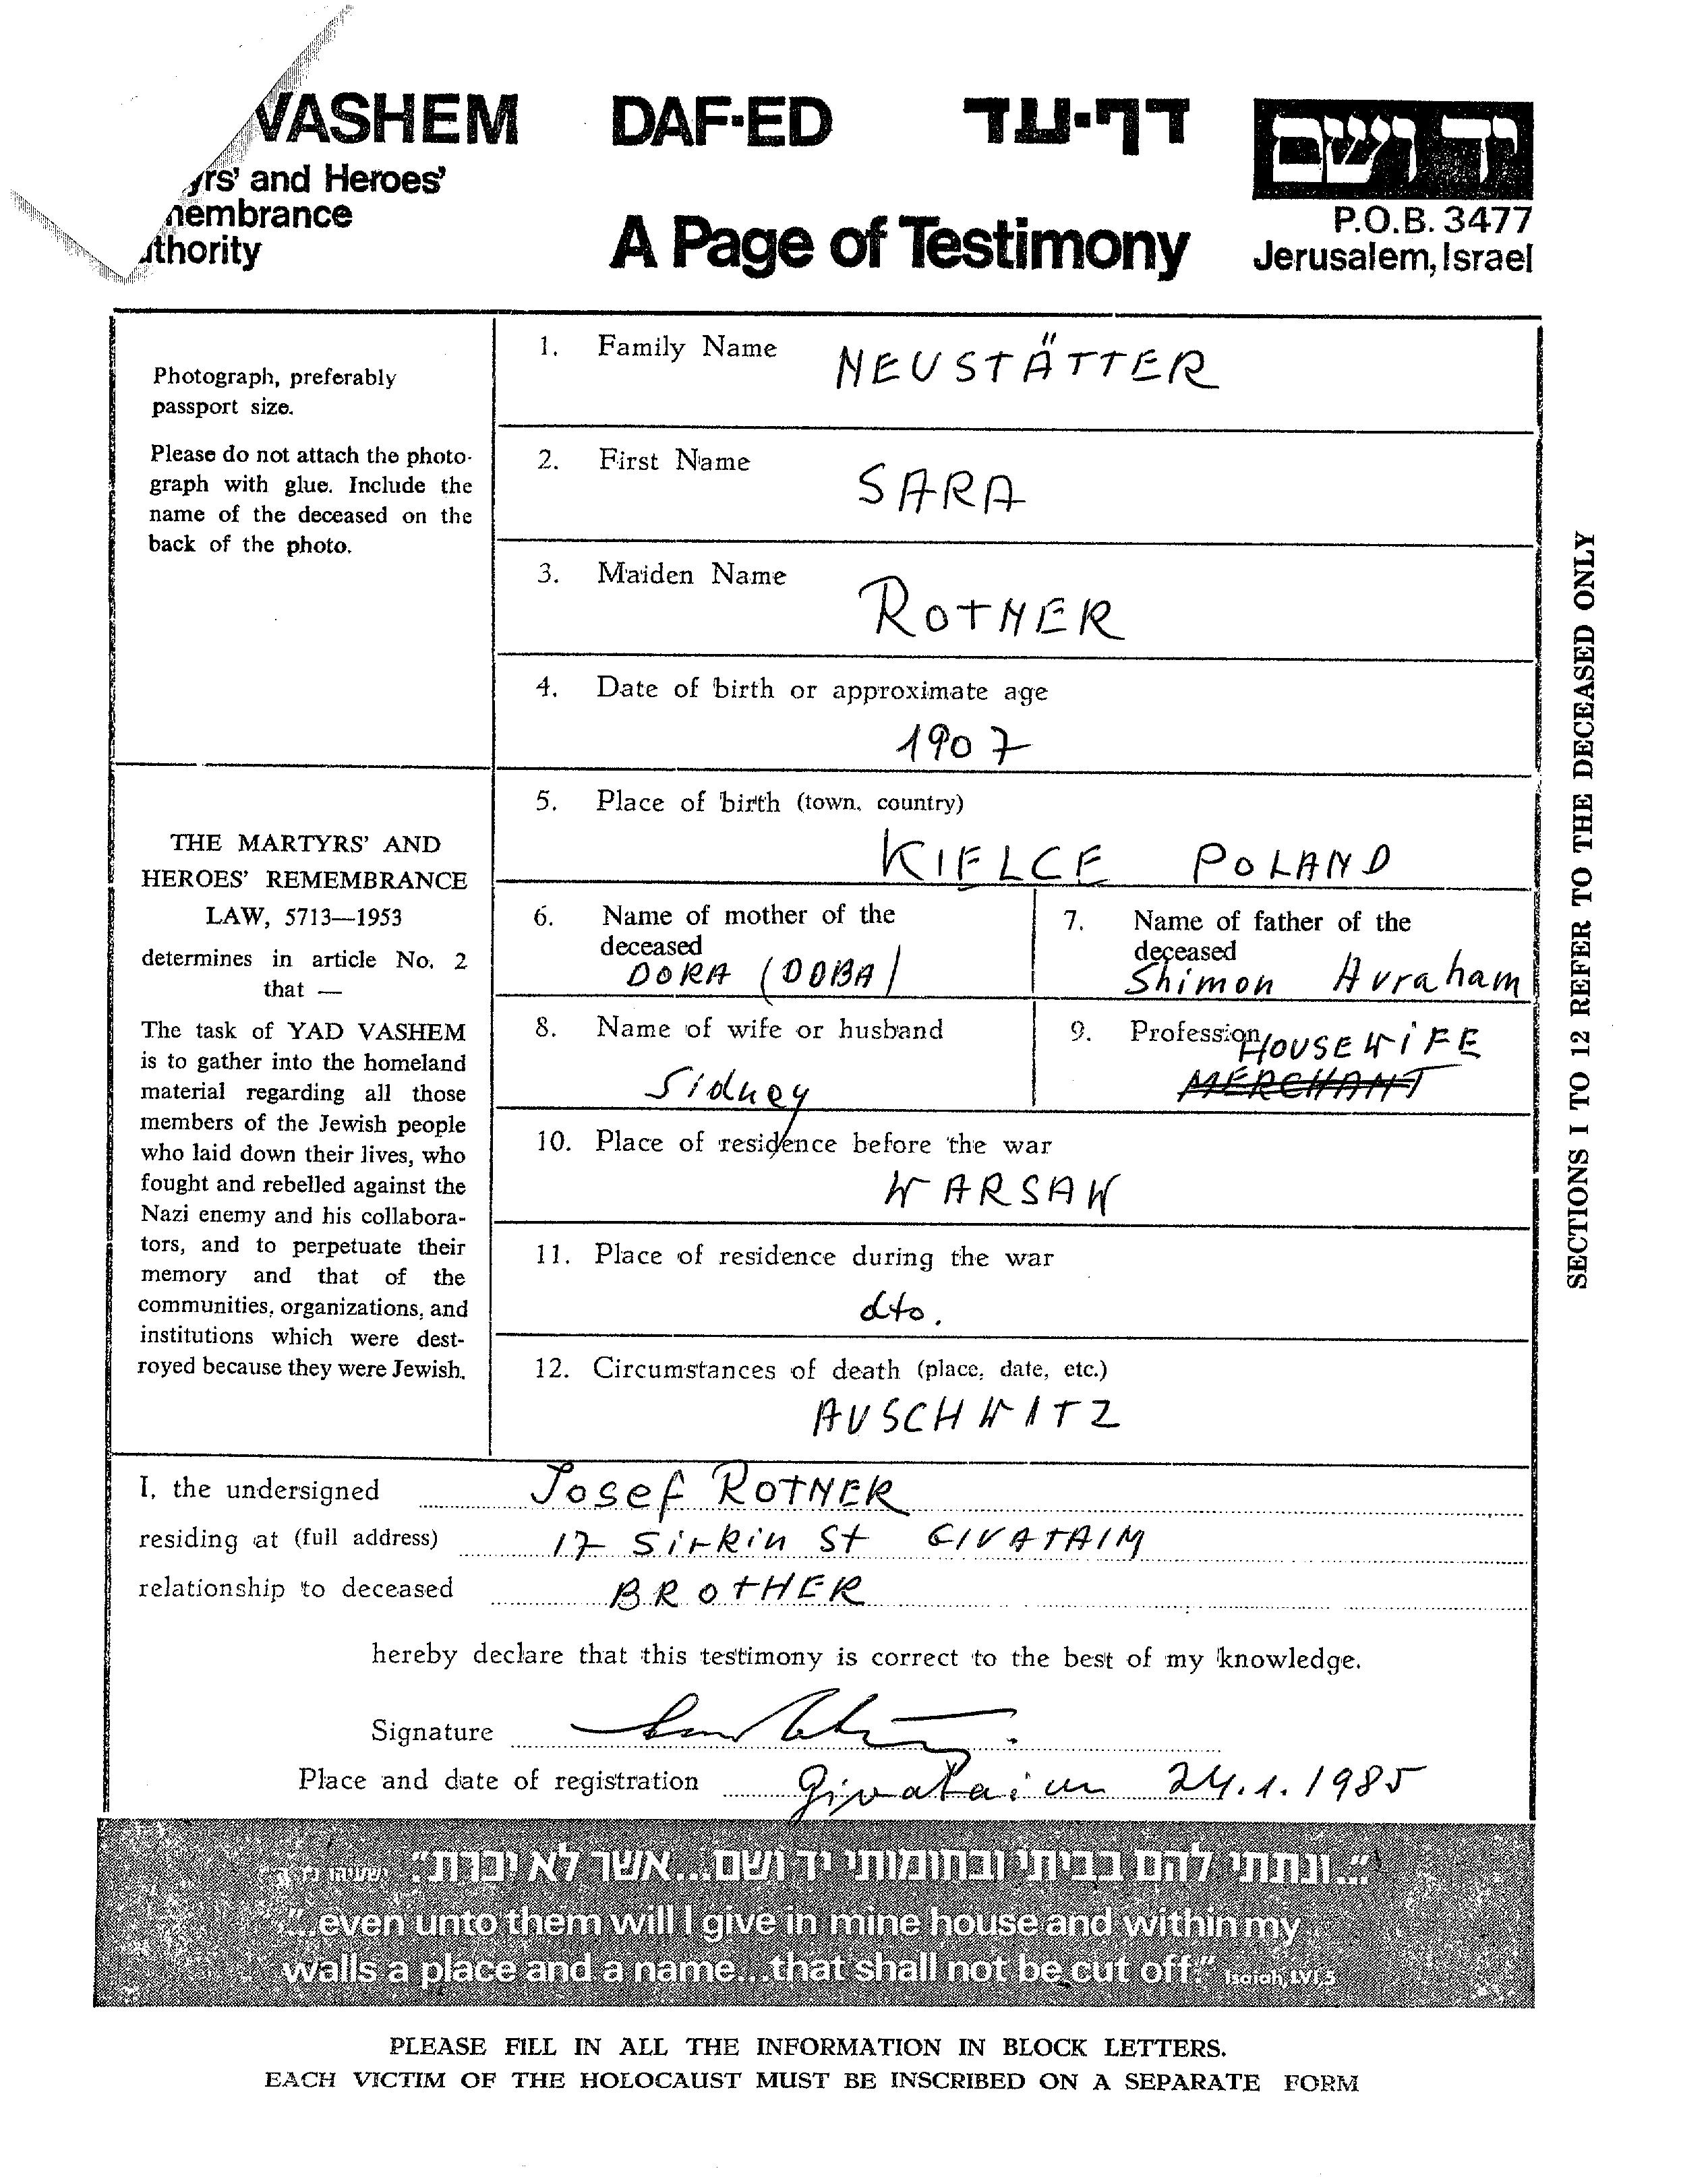 VASHEM DAF-ED דף-עד יד ושם
rs' and Heroes'
embrance
thority
A Page of Testimony
P.O.B. 3477
Jerusalem, Israel
Photograph, preferably
passport size.
Please do not attach the photo-
graph with glue. Include the
name of the deceased on the
back of the photo.
THE MARTYRS' AND
HEROES' REMEMBRANCE
LAW, 5713—1953
determines in article No. 2
that —
The task of YAD VASHEM
is to gather into the homeland
material regarding all those
members of the Jewish people
who laid down their lives, who
fought and rebelled against the
Nazi enemy and his collabora-
tors, and to perpetuate their
memory and that of the
communities, organizations, and
institutions which were dest-
royed because they were Jewish.
1. Family Name
NEUSTÄTTER
2. First Name
SARA
3. Maiden Name
ROTNER
4. Date of birth or approximate age
1907
5. Place of birth (town, country)
KIELCE POLAND
6. Name of mother of the
deceased
DORA (DOBA)
7. Name of father of the
deceased
Shimon Avraham
8. Name of wife or husband
Sidney
9. Profession HOUSEWIFE
MERCHANT
10. Place of residence before the war
WARSAW
11. Place of residence during the war
dto.
12. Circumstances of death (place, date, etc.)
AUSCHWITZ
SECTIONS 1 TO 12 REFER TO THE DECEASED ONLY
I, the undersigned Josef ROTNER
residing at (full address) 17 Sirkin St GIVATAIM
relationship to deceased BROTHER
hereby declare that this testimony is correct to the best of my knowledge.
Signature
Place and date of registration Givataim 24.1.1985
"...ונתתי להם בביתי ובחומותי יד ושם...אשר לא יכרת".
"..even unto them will I give in mine house and within my
walls a place and a name...that shall not be cut off." Isaiah, LVI, 5
PLEASE FILL IN ALL THE INFORMATION IN BLOCK LETTERS.
EACH VICTIM OF THE HOLOCAUST MUST BE INSCRIBED ON A SEPARATE FORM